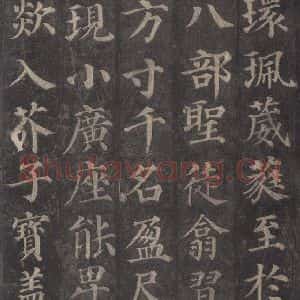 環珮葳蕤至於
八部聖徒翕習
方寸千名盈尺
現小廣座能卑
欻入芥子寶盖
Shufawang.cn